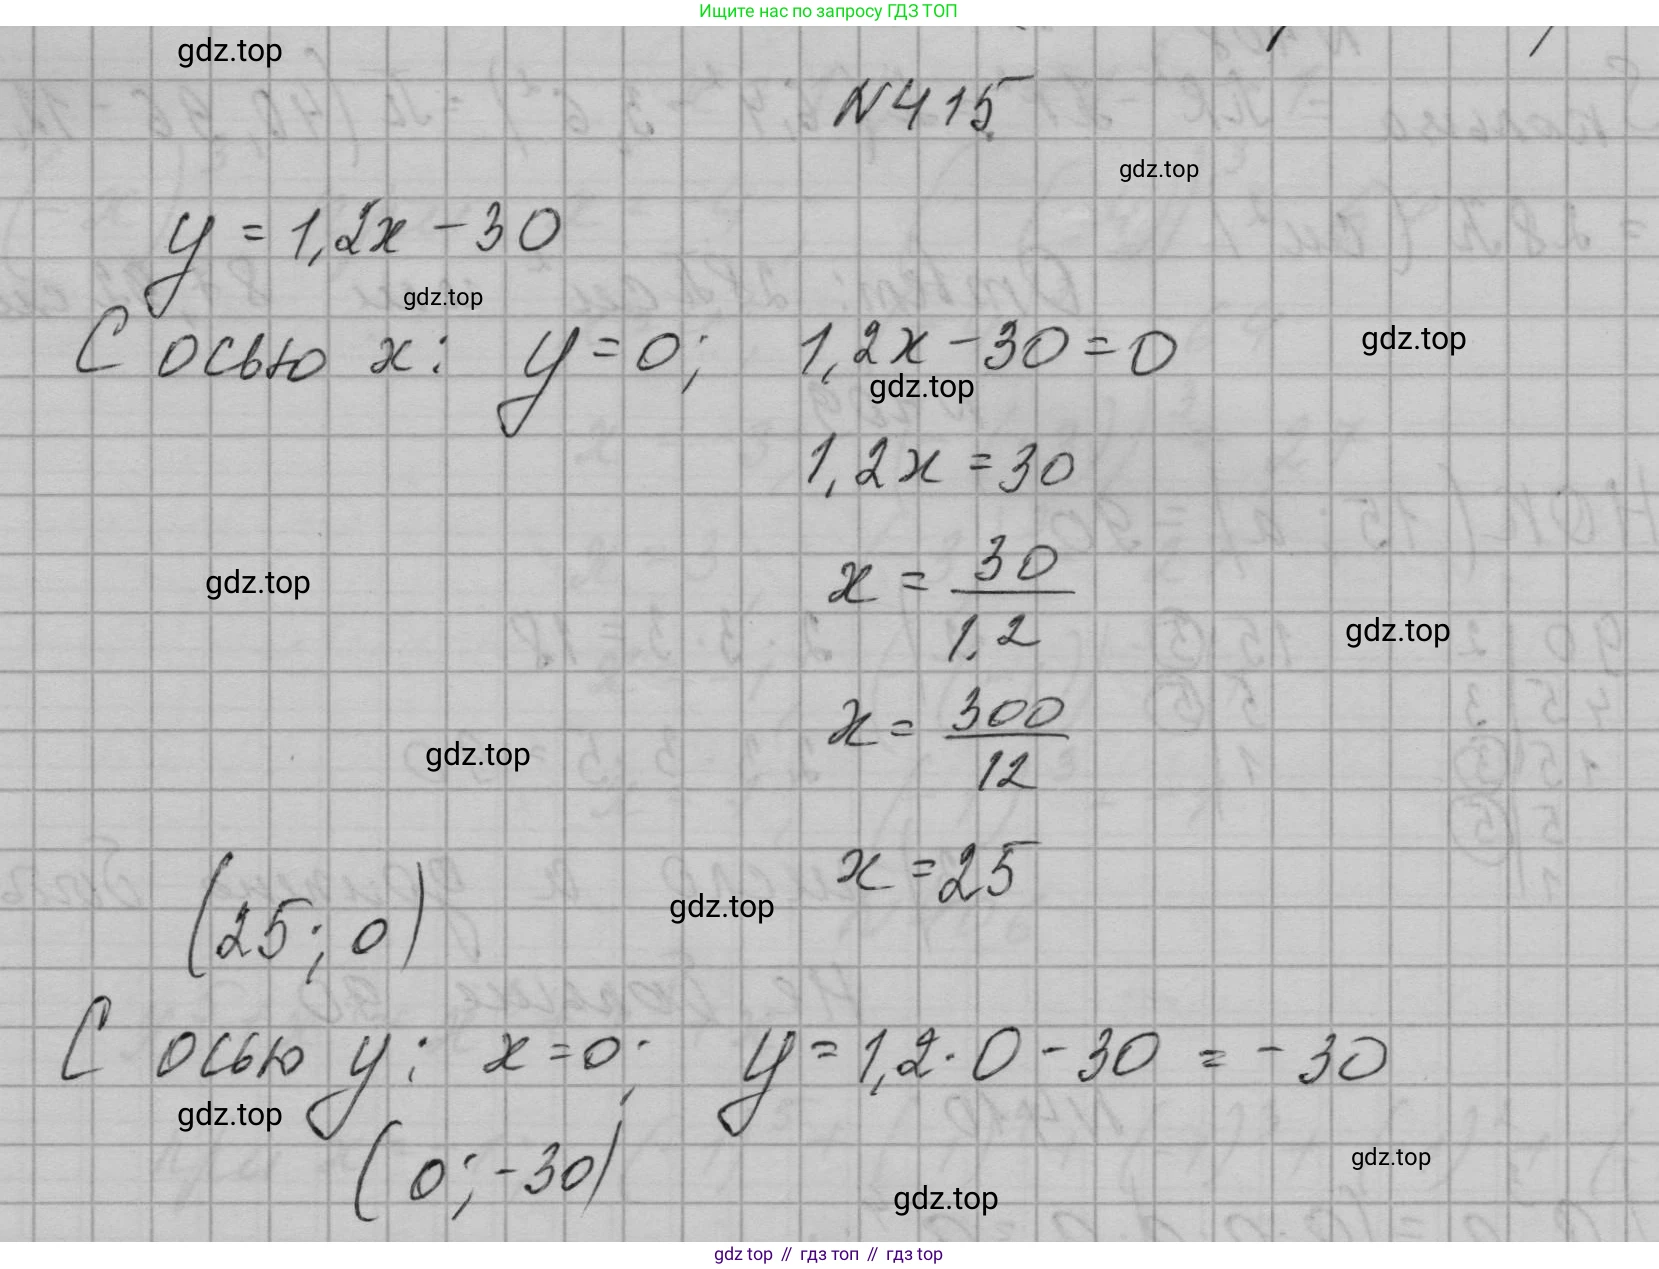 Ищите нас по запросу ГДЗ ТОП
gdz.top
N415
gdz.top
y = 1,2x - 30
gdz.top
С осью x: y = 0; 1,2x - 30 = 0
gdz.top
gdz.top
1,2x = 30
x = 30/1,2
gdz.top
gdz.top
x = 300/12
gdz.top
x = 25
gdz.top
(25; 0)
С осью y: x = 0; y = 1,2 · 0 - 30 = -30
gdz.top
(0; -30)
gdz.top
gdz.top
gdz top // гдз топ // гдз top